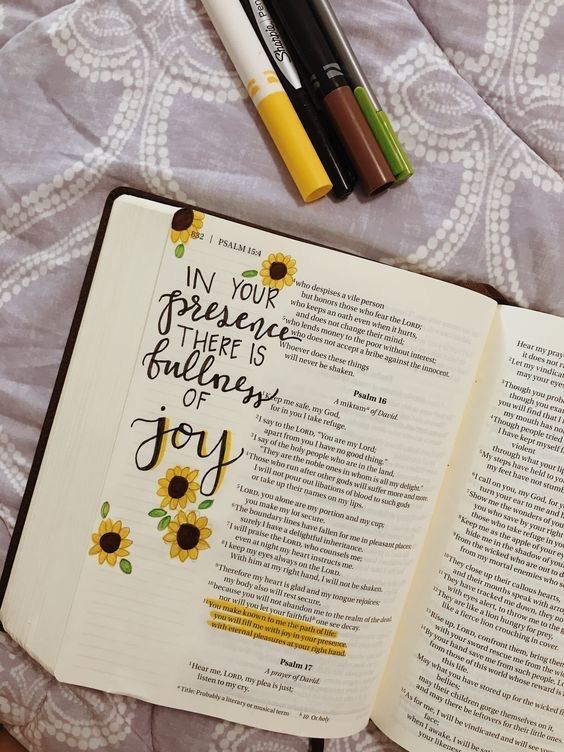 Sharpie Pen
832 | PSALM 15:4
IN YOUR
presence
THERE IS
fullness
OF
joy
4 who despises a vile person
but honors those who fear the LORD;
who keeps an oath even when it hurts,
and does not change their mind;
5 who lends money to the poor without interest;
who does not accept a bribe against the innocent.
Whoever does these things
will never be shaken.
Psalm 16
A miktam a of David.
Keep me safe, my God,
for in you I take refuge.
2 I say to the LORD, “You are my Lord;
apart from you I have no good thing.”
3 I say of the holy people who are in the land,
“They are the noble ones in whom is all my delight.”
4 Those who run after other gods will suffer more and more.
I will not pour out libations of blood to such gods
or take up their names on my lips.
5 LORD, you alone are my portion and my cup;
you make my lot secure.
6 The boundary lines have fallen for me in pleasant places;
surely I have a delightful inheritance.
7 I will praise the LORD, who counsels me;
even at night my heart instructs me.
8 I keep my eyes always on the LORD.
With him at my right hand, I will not be shaken.
9 Therefore my heart is glad and my tongue rejoices;
my body also will rest secure,
10 because you will not abandon me to the realm of the dead,
nor will you let your faithful b one see decay.
11 You make known to me the path of life;
you will fill me with joy in your presence,
with eternal pleasures at your right hand.
Psalm 17
A prayer of David.
1 Hear me, LORD, my plea is just;
listen to my cry.
a Title: Probably a literary or musical term b 10 Or holy
Hear my pray
it does not r
2 Let my vindic
may your eyes
3 Though you prob
though you exa
you will find that I
my mouth has no
4 Though people tried
I have kept myself
violent
through what your lip
5 My steps have held to you
my feet have not stum
6 I call on you, my God, for y
turn your ear to me and
7 Show me the wonders of your
you who save by your righ
those who take refuge in
8 Keep me as the apple of your e
hide me in the shadow of
9 from the wicked who are out to
from my mortal enemies who
10 They close up their callous hearts,
and their mouths speak with arro
11 They have tracked me down, they no
with eyes alert, to throw me to th
12 They are like a lion hungry for prey,
like a fierce lion crouching in cover.
13 Rise up, LORD, confront them, bring them
with your sword rescue me from the wic
14 By your hand save me from such people, LO
from those of this world whose reward is i
this life.
May what you have stored up for the wicked f
bellies;
may their children gorge themselves on it,
and may there be leftovers for their little ones.
15 As for me, I will be vindicated and will see your
face;
when I awake, I will be
your liken